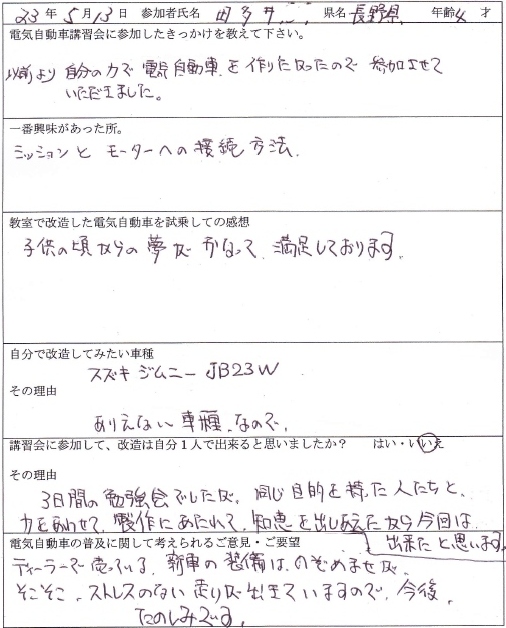 23 年 5 月 13 日 参加者氏名 田多井 県名 長野県 年齢 才
電気自動車講習会に参加したきっかけを教えて下さい。
以前より 自分の力で 電気自動車を作りたかったので 参加させて
いただきました。
一番興味があった所。
ミッションと モーターへの接続方法.
教室で改造した電気自動車を試乗しての感想
子供の頃からの夢が かなって、満足しております。
自分で改造してみたい車種
スズキ ジムニー JB23W
その理由
ありえない 車種.なので、
講習会に参加して、改造は自分1人で出来ると思いましたか? はい・いいえ
その理由
3日間の勉強会でしたが、同じ目的を持った人たちと、
力をあわせて、製作にあたれて、知恵を出しあえたから今回は
出来たと思います。
電気自動車の普及に関して考えられるご意見・ご要望
ディーラーで売っている、新車の装備は、のぞめませんが、
そこそこ、ストレスのない走りが出来ていますので、今後、
たのしみです。